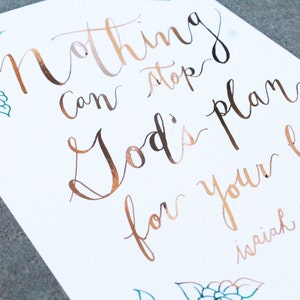 Nothing
can stop
God's plan
for your
isaiah